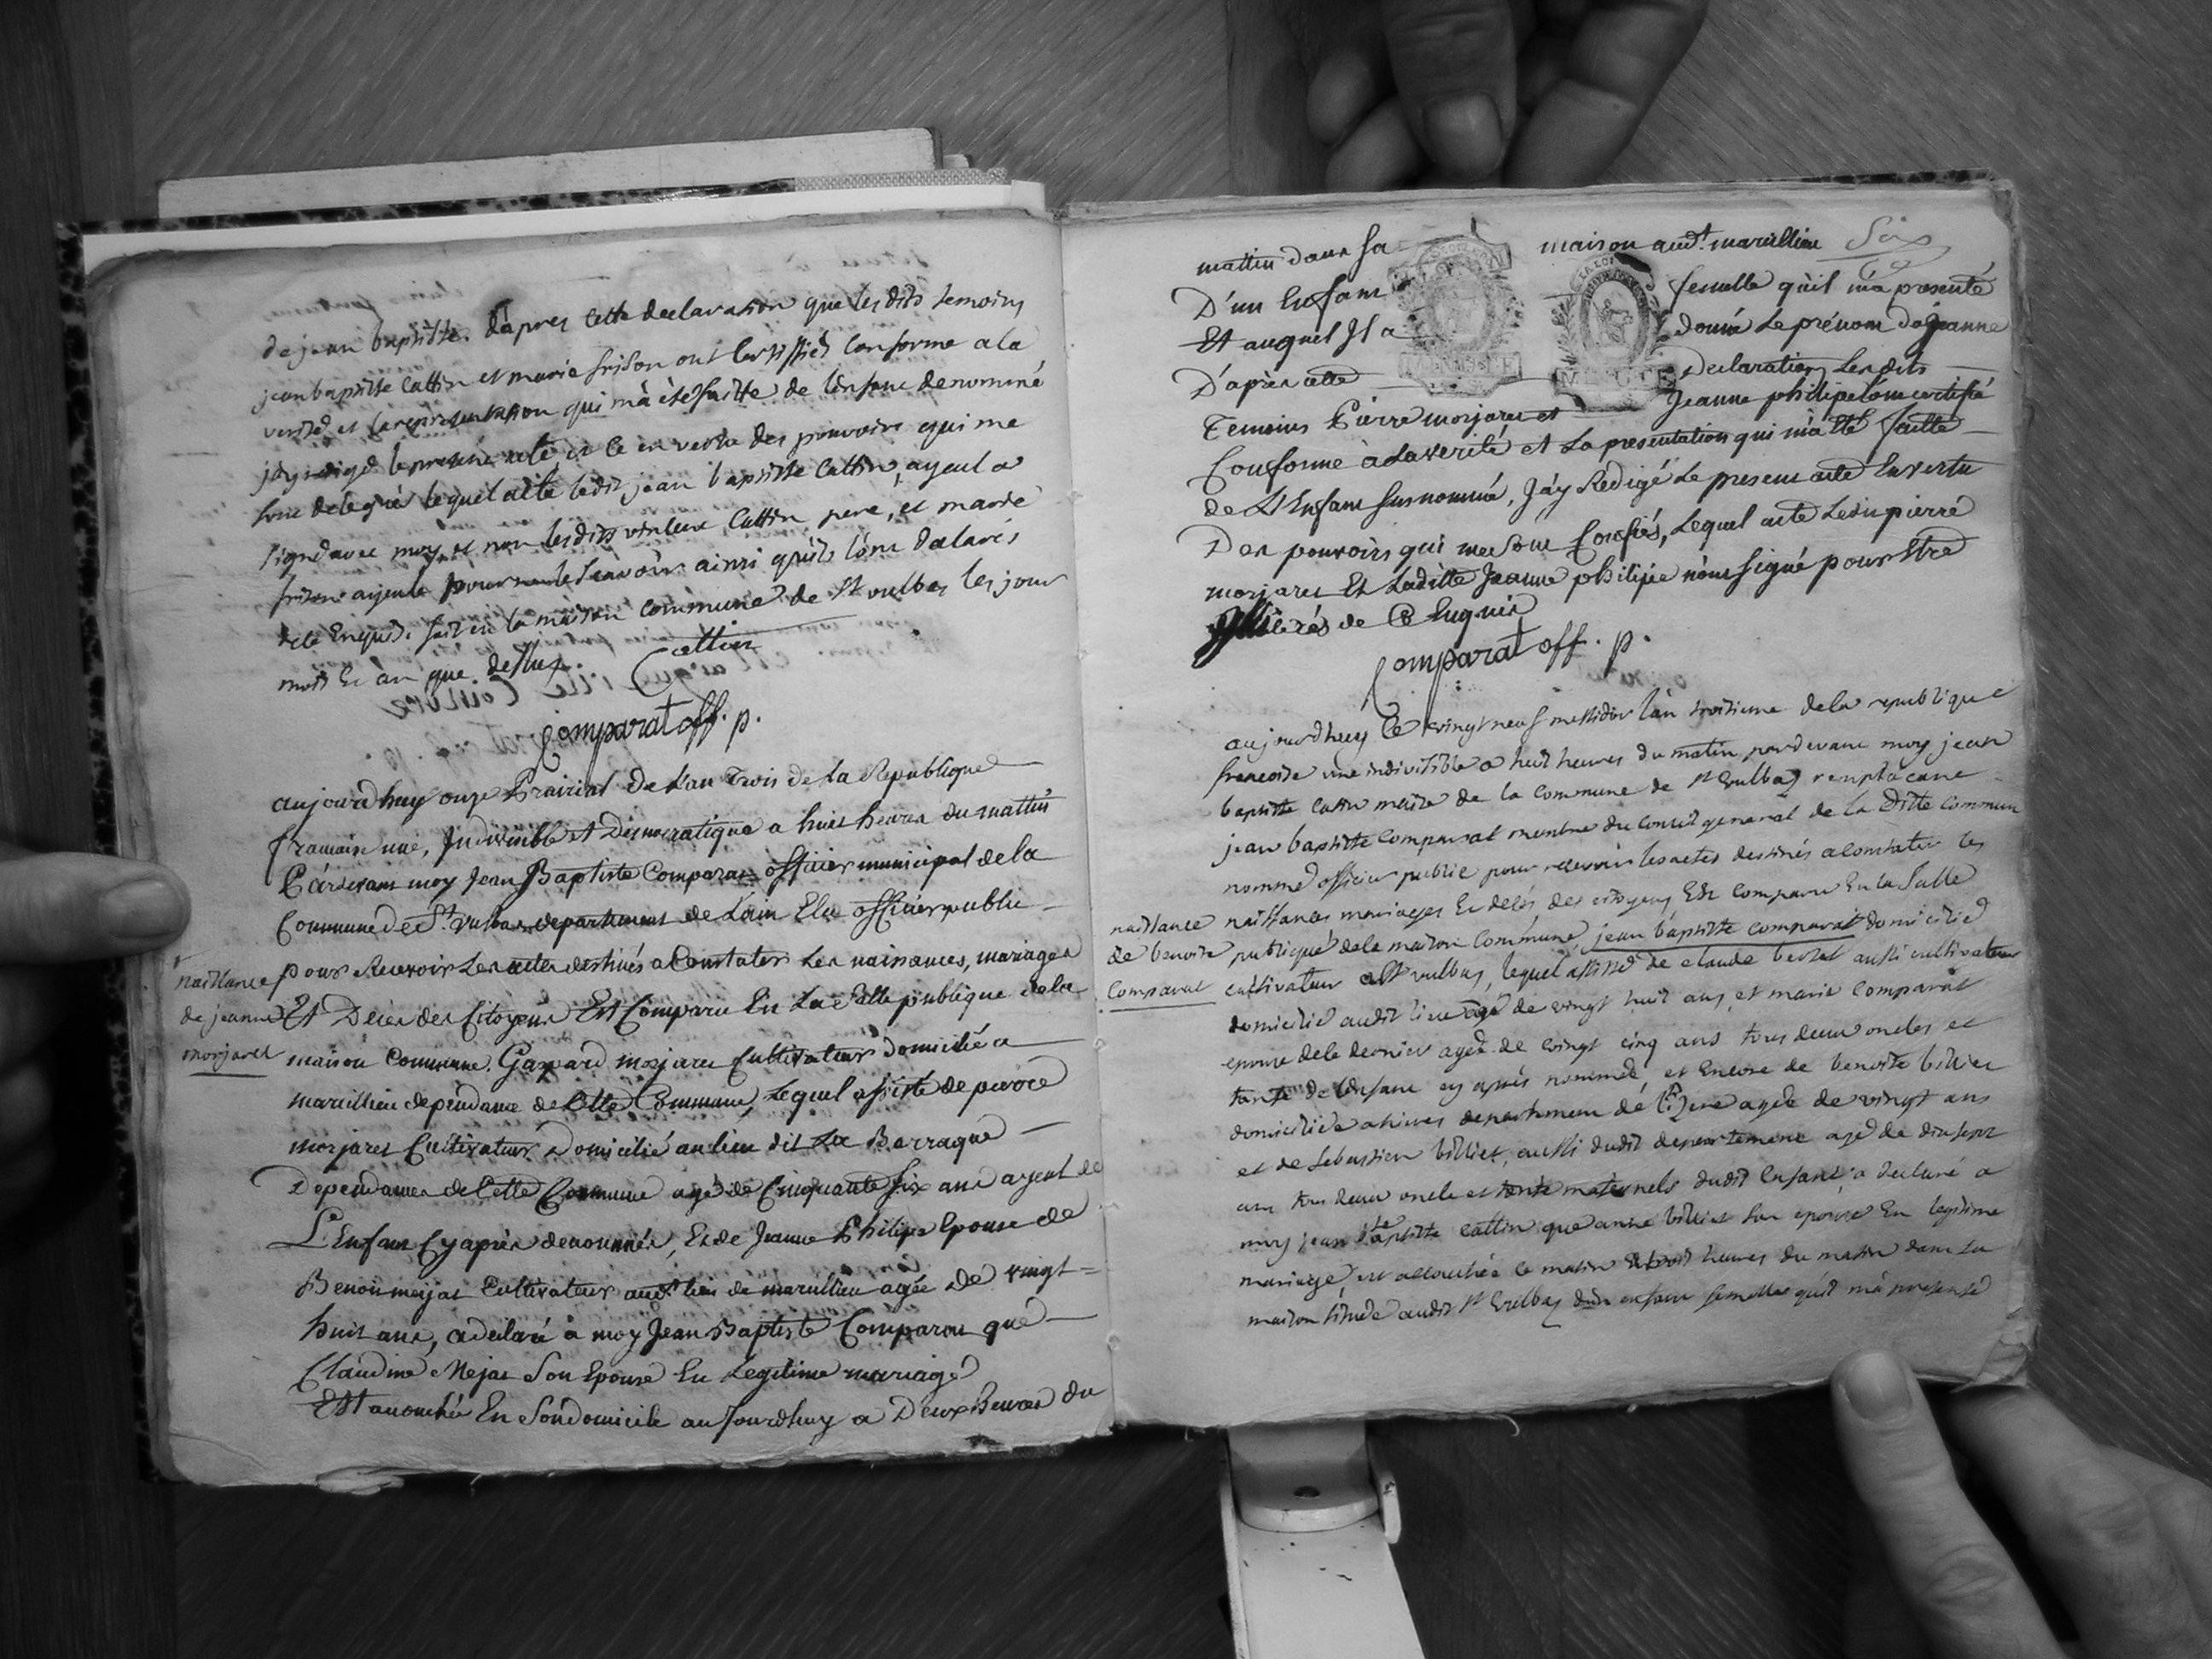 de jean baptiste. d'apres cette declaration que les dits temoins
jean baptiste cattin et marie frison ont certiffiés conforme a la
verité et la representation qui m'a été faitte de l'enfant denommé
j'ay redigé le present acte et ce en vertu des pouvoirs qui me
sont delegués lequel acte ledit jean baptiste cattin, ayeul a
signé avec moy et non lesdits cattin pere, et marie
frison ayeule pour ne le scavoir ainsi qu'ils l'ont declarés
de ce enquis. fait en la maison commune de St vulbas les jour
mois et an que dessus.
Cattin
Comparat off. p.
aujourdhuy onze Prairial de L'an Trois de La Republique
francaise une, Indivisible et Démocratique a huit heures du mattin
Pardevant moy Jean Baptiste Comparat officier municipal de la
Commune de St. Vulbas departement de Lain Elu officier public
naissance
de jeanne
morjaret
pour Recevoir Les actes destinés a Constater Les naissances, mariages
Et Déces des Citoyens Est Comparu En La Salle publique de la
maison Commune. Gaspard morjaret Cultivateur domicilié a
marcillieu dependance de Cette Commune, Lequel assisté de pierre
morjaret Cultivateur Domicilié au lieu dit La Barraque
Dependance de Cette Commune agé de Cinquante six ans ayeul de
L'Enfant Cy après denommée, Et de Jeanne Philipe Epouse de
Benoit mejat Cultivateur audt. lieu de marcillieu agée de vingt=
huit ans, a déclaré à moy Jean Baptiste Comparat que
Claudine Mejat Son Epouse En Legitime mariage
Est accouchée En Son domicile aujourdhuy a Deux heures du
Six
mattin dans sa maison audt. marcillieu
D'un Enfant femelle qu'il m'a presenté
Et auquel Il a donné Le prénom de Jeanne
D'après cette Declaration Les dits
Temoins Pierre morjaret et Jeanne philipe l'ont certifié
Conforme à la verité et La presentation qui m'a été faitte
de L'Enfant susnommé, J'ay Redigé Le present acte En vertu
Des pouvoirs qui me sont Confiés, Lequel acte Ledit pierre
morjaret Et Laditte Jeanne philipe n'ont signé pour Etre
illiterés de Ce Enquis
Comparat off. p.
aujourdhuy Ce vingt neuf messidor l'an troisieme de la republique
francoise une indivisible a huit heures du matin pardevant moy jean
baptiste cattin maire de la commune de St Vulbas remplacant
jean baptiste comparat membre du conseil general de la Ditte commun
nommé officier public pour recevoir les actes destinés a constater les
naissance
de benoite
comparat
naissances mariages et decés des citoyens Est comparu En la Salle
publique de la maison Commune, jean baptiste comparat domicilié
cultivateur a St vulbas, lequel assisté de claude bertet aussi cultivateur
domicilié audit lieu agé de vingt huit ans, et marie comparat
epouse de le dernier agée de vingt cinq ans tous deux oncles et
tante de l'enfant cy après nommé, et Encore de benoite billiet
domiciliée a hieres departement de l'izere agée de vingt ans
et de Sebastien billiet, aussi dudit departement agé de dix sept
ans tous deux oncle et tante maternels dudit Enfant a declaré a
moy jean Baptiste cattin que anne billiet son epouse En legitime
mariage est accouchée le matin a trois heures du matin dans sa
maison située audit St Vulbas d'un enfant femelle qu'il m'a presenté